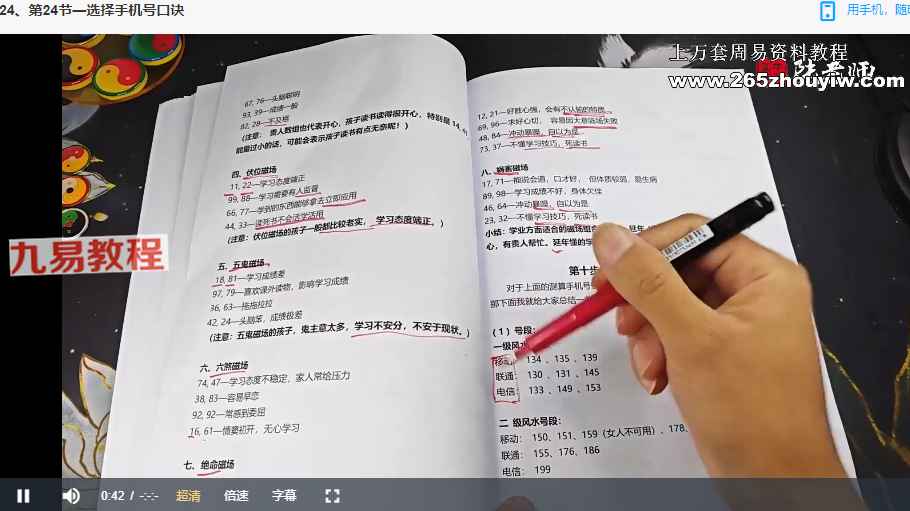 24、第24节—选择手机号口诀
用手机，随
上万套周易资料教程
陆老师
www.265zhouyiw.com
67, 76—头脑聪明
93, 39—成绩一般
82, 28—不及格
(注意： 贵人数组也代表开心，孩子读书读得很开心，特别是 14, 41
能量过小的话，可能会表示孩子读书有点无奈呢！)
四、伏位磁场
11, 22—学习态度端正
99, 88—学习需要有人监督
66, 77—学到的东西能够拿去立即应用
44, 33—读死书不会活学活用
(注意：伏位磁场的孩子一般都比较老实， 学习态度端正。)
五、五鬼磁场
18, 81—学习成绩差
97, 79—喜欢课外读物，影响学习成绩
36, 63—拖拖拉拉
42, 24—头脑笨，成绩极差
(注意：五鬼磁场的孩子，鬼主意太多，学习不安分，不安于现状。)
六、六煞磁场
74, 47—学习态度不稳定，家人常给压力
38, 83—容易早恋
92, 92—常感到委屈
16, 61—情窦初开，无心学习
七、绝命磁场
12, 21—好胜心强，会有不认输的特质
69, 96—求好心切， 容易因大意临场失败
48, 84—冲动暴躁，自以为是
73, 37—不懂学习技巧，死读书
八、祸害磁场
17, 71—能说会道，口才好， 但体质较弱，易生病
89, 98—学习成绩不好，身体欠佳
46, 64—冲动暴躁，自以为是
23, 32—不懂学习技巧，死读书
小结：学业方面适合的磁场组合
延年
心，有贵人帮忙。延年懂的学
第十步
对于上面的测算手机号
那下面我就给大家总结一
(1) 号段：
一级风水
移动： 134 、135 、139
联通： 130 、131 、145
电信： 133 、149 、153
二 级风水号段：
移动： 150、151、159（女人不可用）、178、
联通： 155、176、186
电信： 199
九易教程
0:42 / -:-:-
超清
倍速
字幕